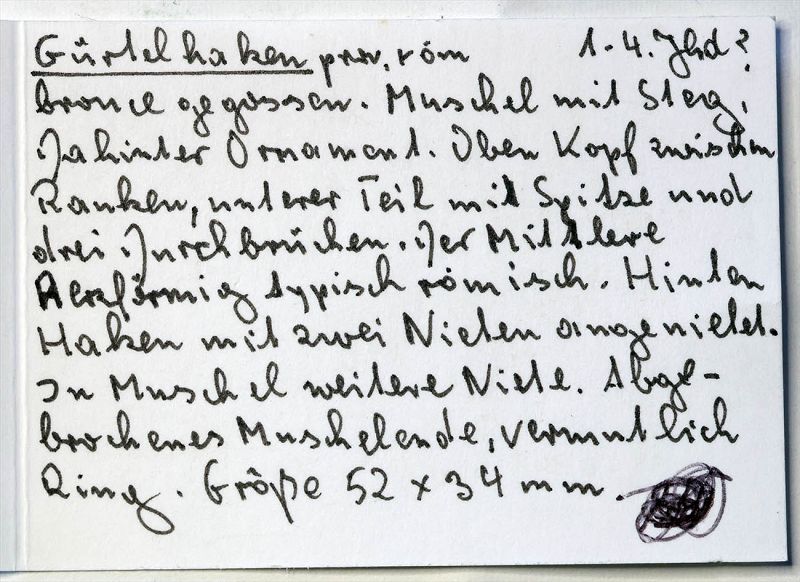 Gürtelhaken prov. röm 1.-4. Jhd?
bronce gegossen. Muschel mit Steg,
dahinter Ornament. Oben Kopf zwischen
Ranken, unterer Teil mit Spitze und
drei Durchbrüchen. Der Mittlere
Herzförmig typisch römisch. Hinten
Haken mit zwei Nieten angenietet.
In Muschel weitere Niete. Abge-
brochenes Muschelende, vermutlich
Ring. Größe 52 x 34 mm.